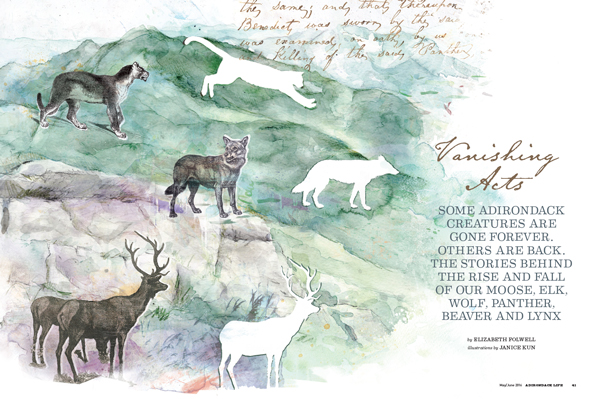 they same; and that thereupon
Benedict was sworn by the said
was examined, on oath, by us
killing of the said Panther,
Vanishing
Acts
SOME ADIRONDACK
CREATURES ARE
GONE FOREVER.
OTHERS ARE BACK.
THE STORIES BEHIND
THE RISE AND FALL
OF OUR MOOSE, ELK,
WOLF, PANTHER,
BEAVER AND LYNX
by ELIZABETH FOLWELL
illustrations by JANICE KUN
May/June 2014 ADIRONDACK LIFE 41